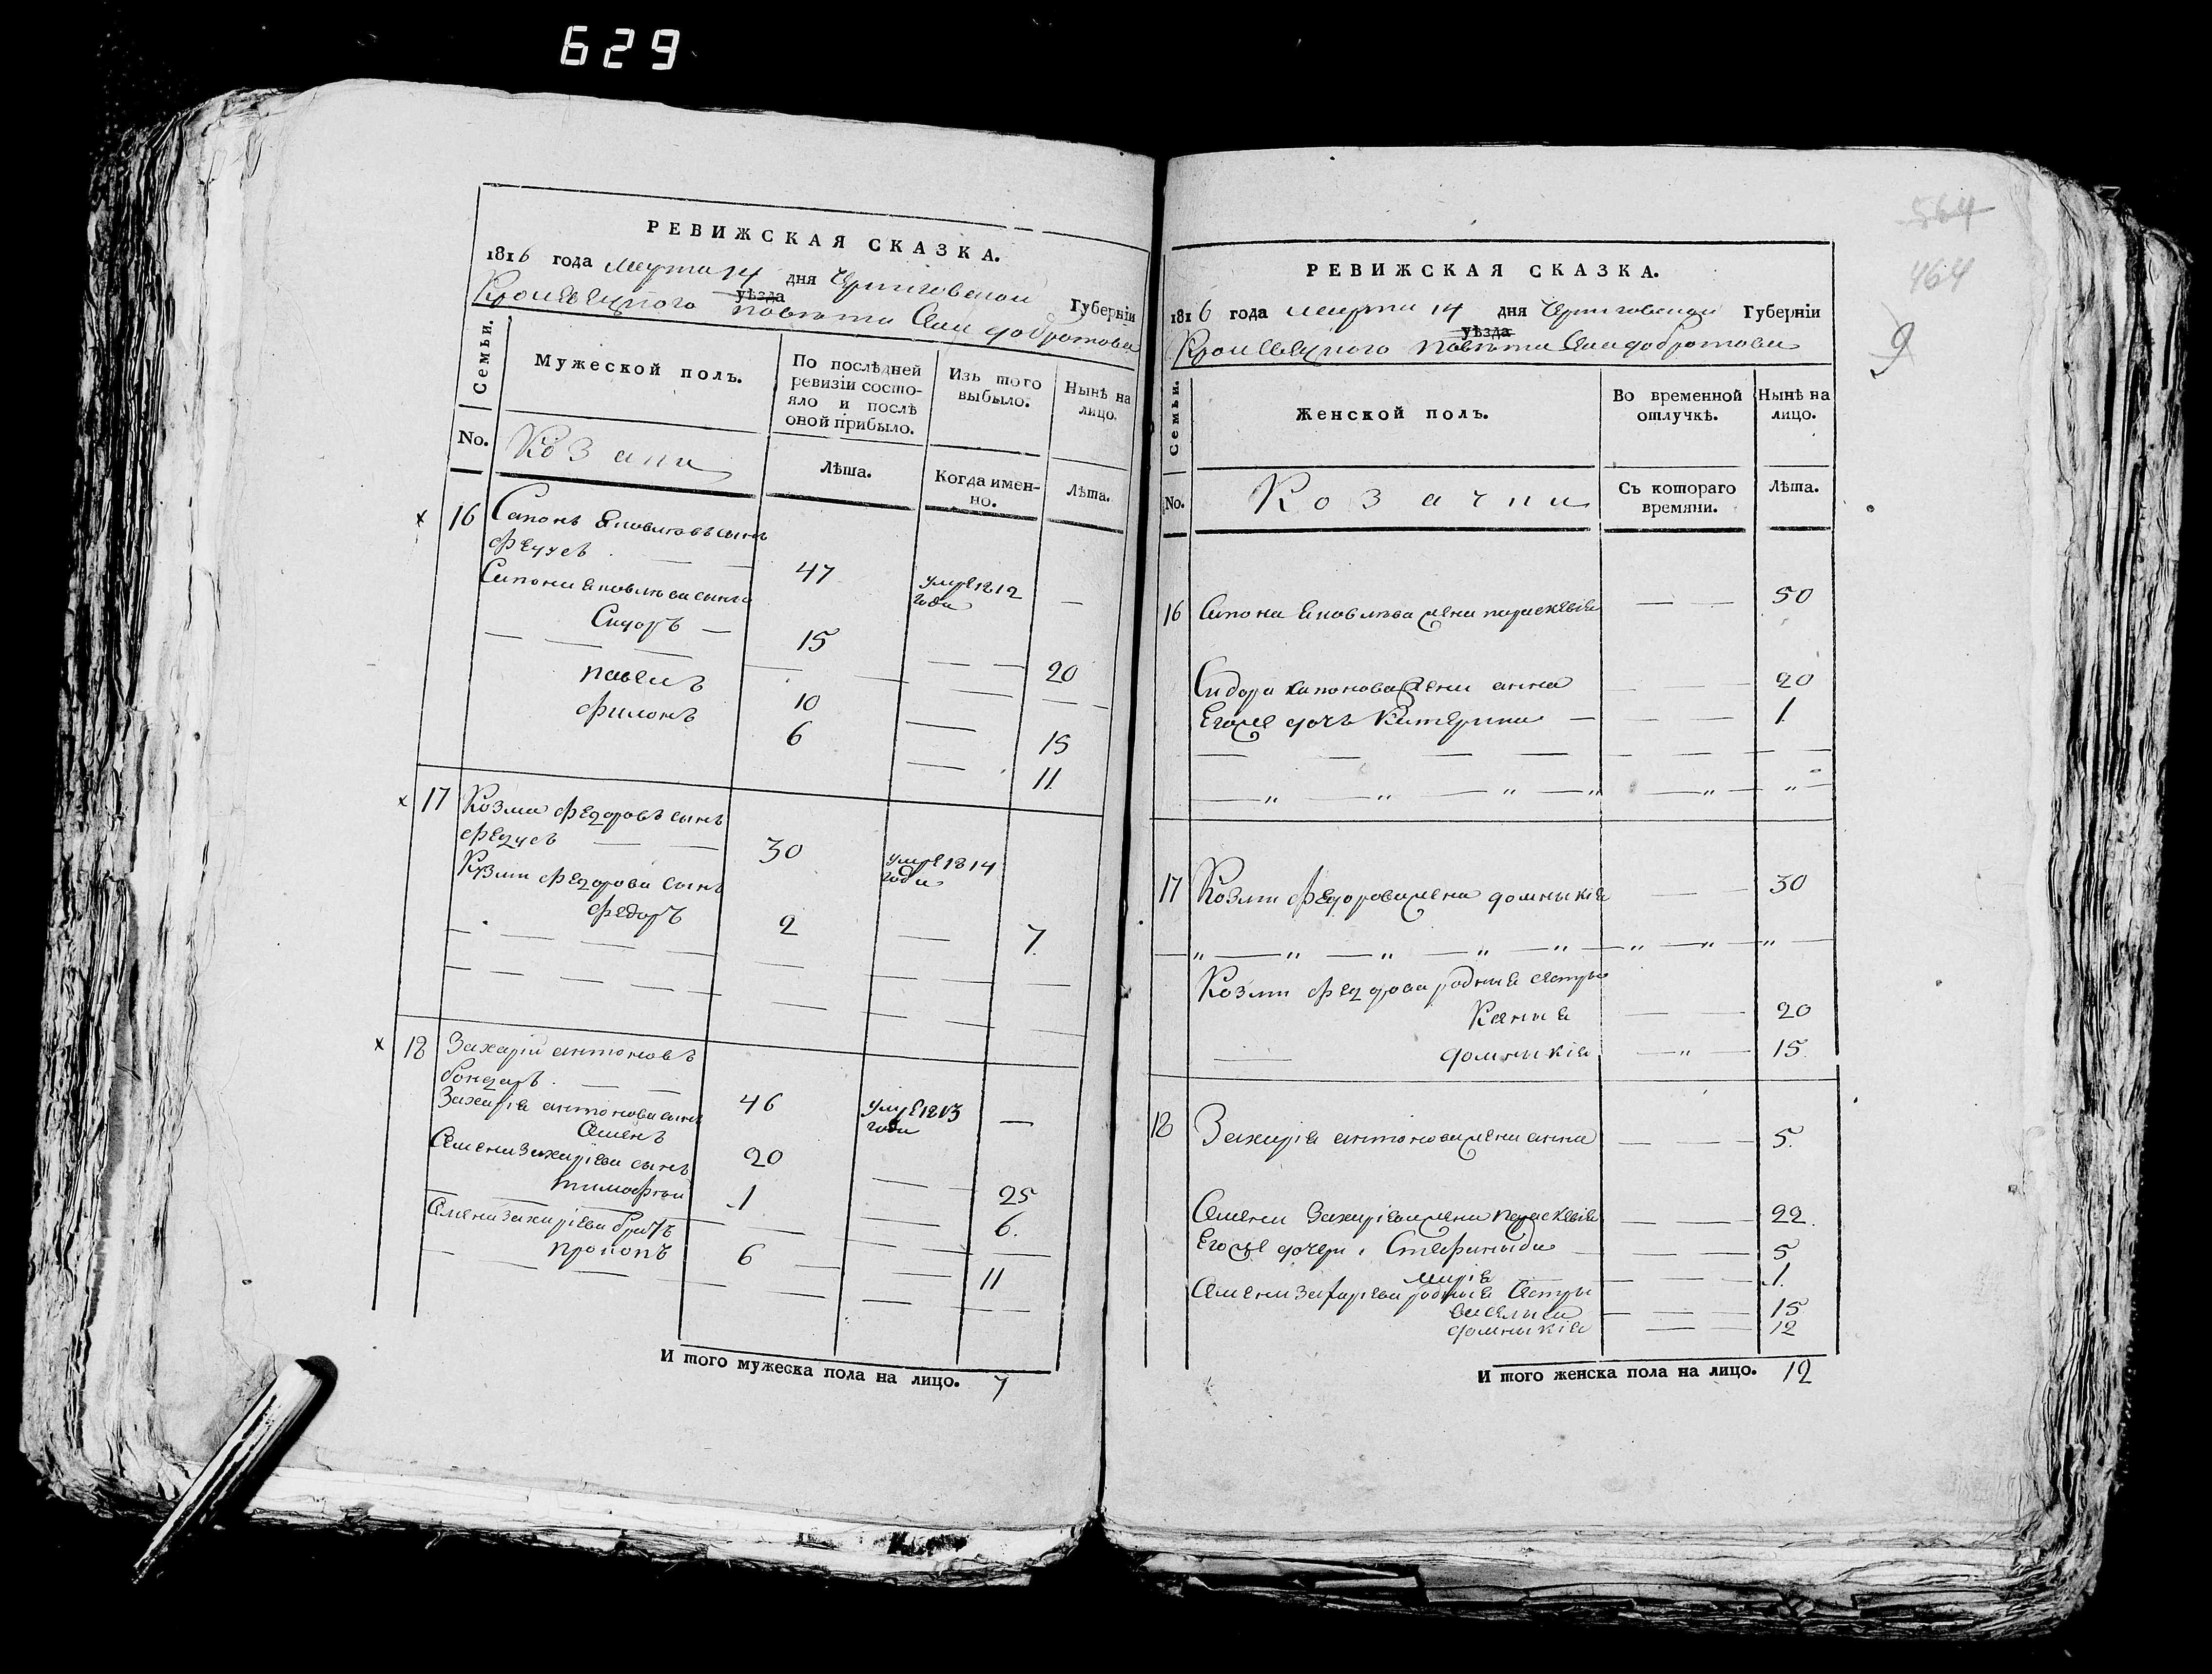 629
РЕВИЖСКАЯ СКАЗКА.
1816 года марта 14 дня Черниговской Губерніи
Кролевецкого уѣзда повѣта Села добротова
Семьи.
Мужеской полъ.
По послѣдней ревизіи состояло и послѣ оной прибыло.
Изъ того выбыло.
Нынѣ на лицо.
No.
Козаки
Лѣта.
Когда именно.
Лѣта.
16 Сапонъ Яковлевъ сынъ
47 умре 1812 года —
Сапона Яковлева сынъ
Сидоръ — 15 — — 20
павелъ 10 — 15
филонъ 6 — 11
17 Козма Федоровъ сынъ
30 умре 1814 года
Кузмы Федорова сынъ
Федоръ 2 — 7.
18 Захарій антоновъ
бондарь 46 умре 1813 года —
Захарія антонова сынъ
Семенъ 20 — 25
Семена Захаріева сынъ
тимофей 1 — 6.
Семена Захаріева братъ
прокопъ 6 — 11
И того мужеска пола на лицо. 7
564
464
9
РЕВИЖСКАЯ СКАЗКА.
1816 года марта 14 дня Черниговской Губерніи
Кролевецкого уѣзда повѣта Села добротова
Семьи.
Женской полъ.
Во временной отлучкѣ.
Нынѣ на лицо.
No.
Козачки
Съ котораго времяни.
Лѣта.
16 Сапона Яковлева жена параскевія — — 50
Сидора Сапонова жена анна — — 20
Егоже дочь Катерина — — — 1.
17 Козмы Федорова жена домникія — — 30
Козмы Федорова родные сестры
— — 20
домникія — " — 15.
18 Захарія антонова жена анна — — 5.
Семена Захаріева жена параскевія — — 22.
Егоже дочери Стефанида — — 5
марія — — 1.
Семена Захаріева родные Сестры
василиса — — 15
домникія — — 12
И того женска пола на лицо. 12